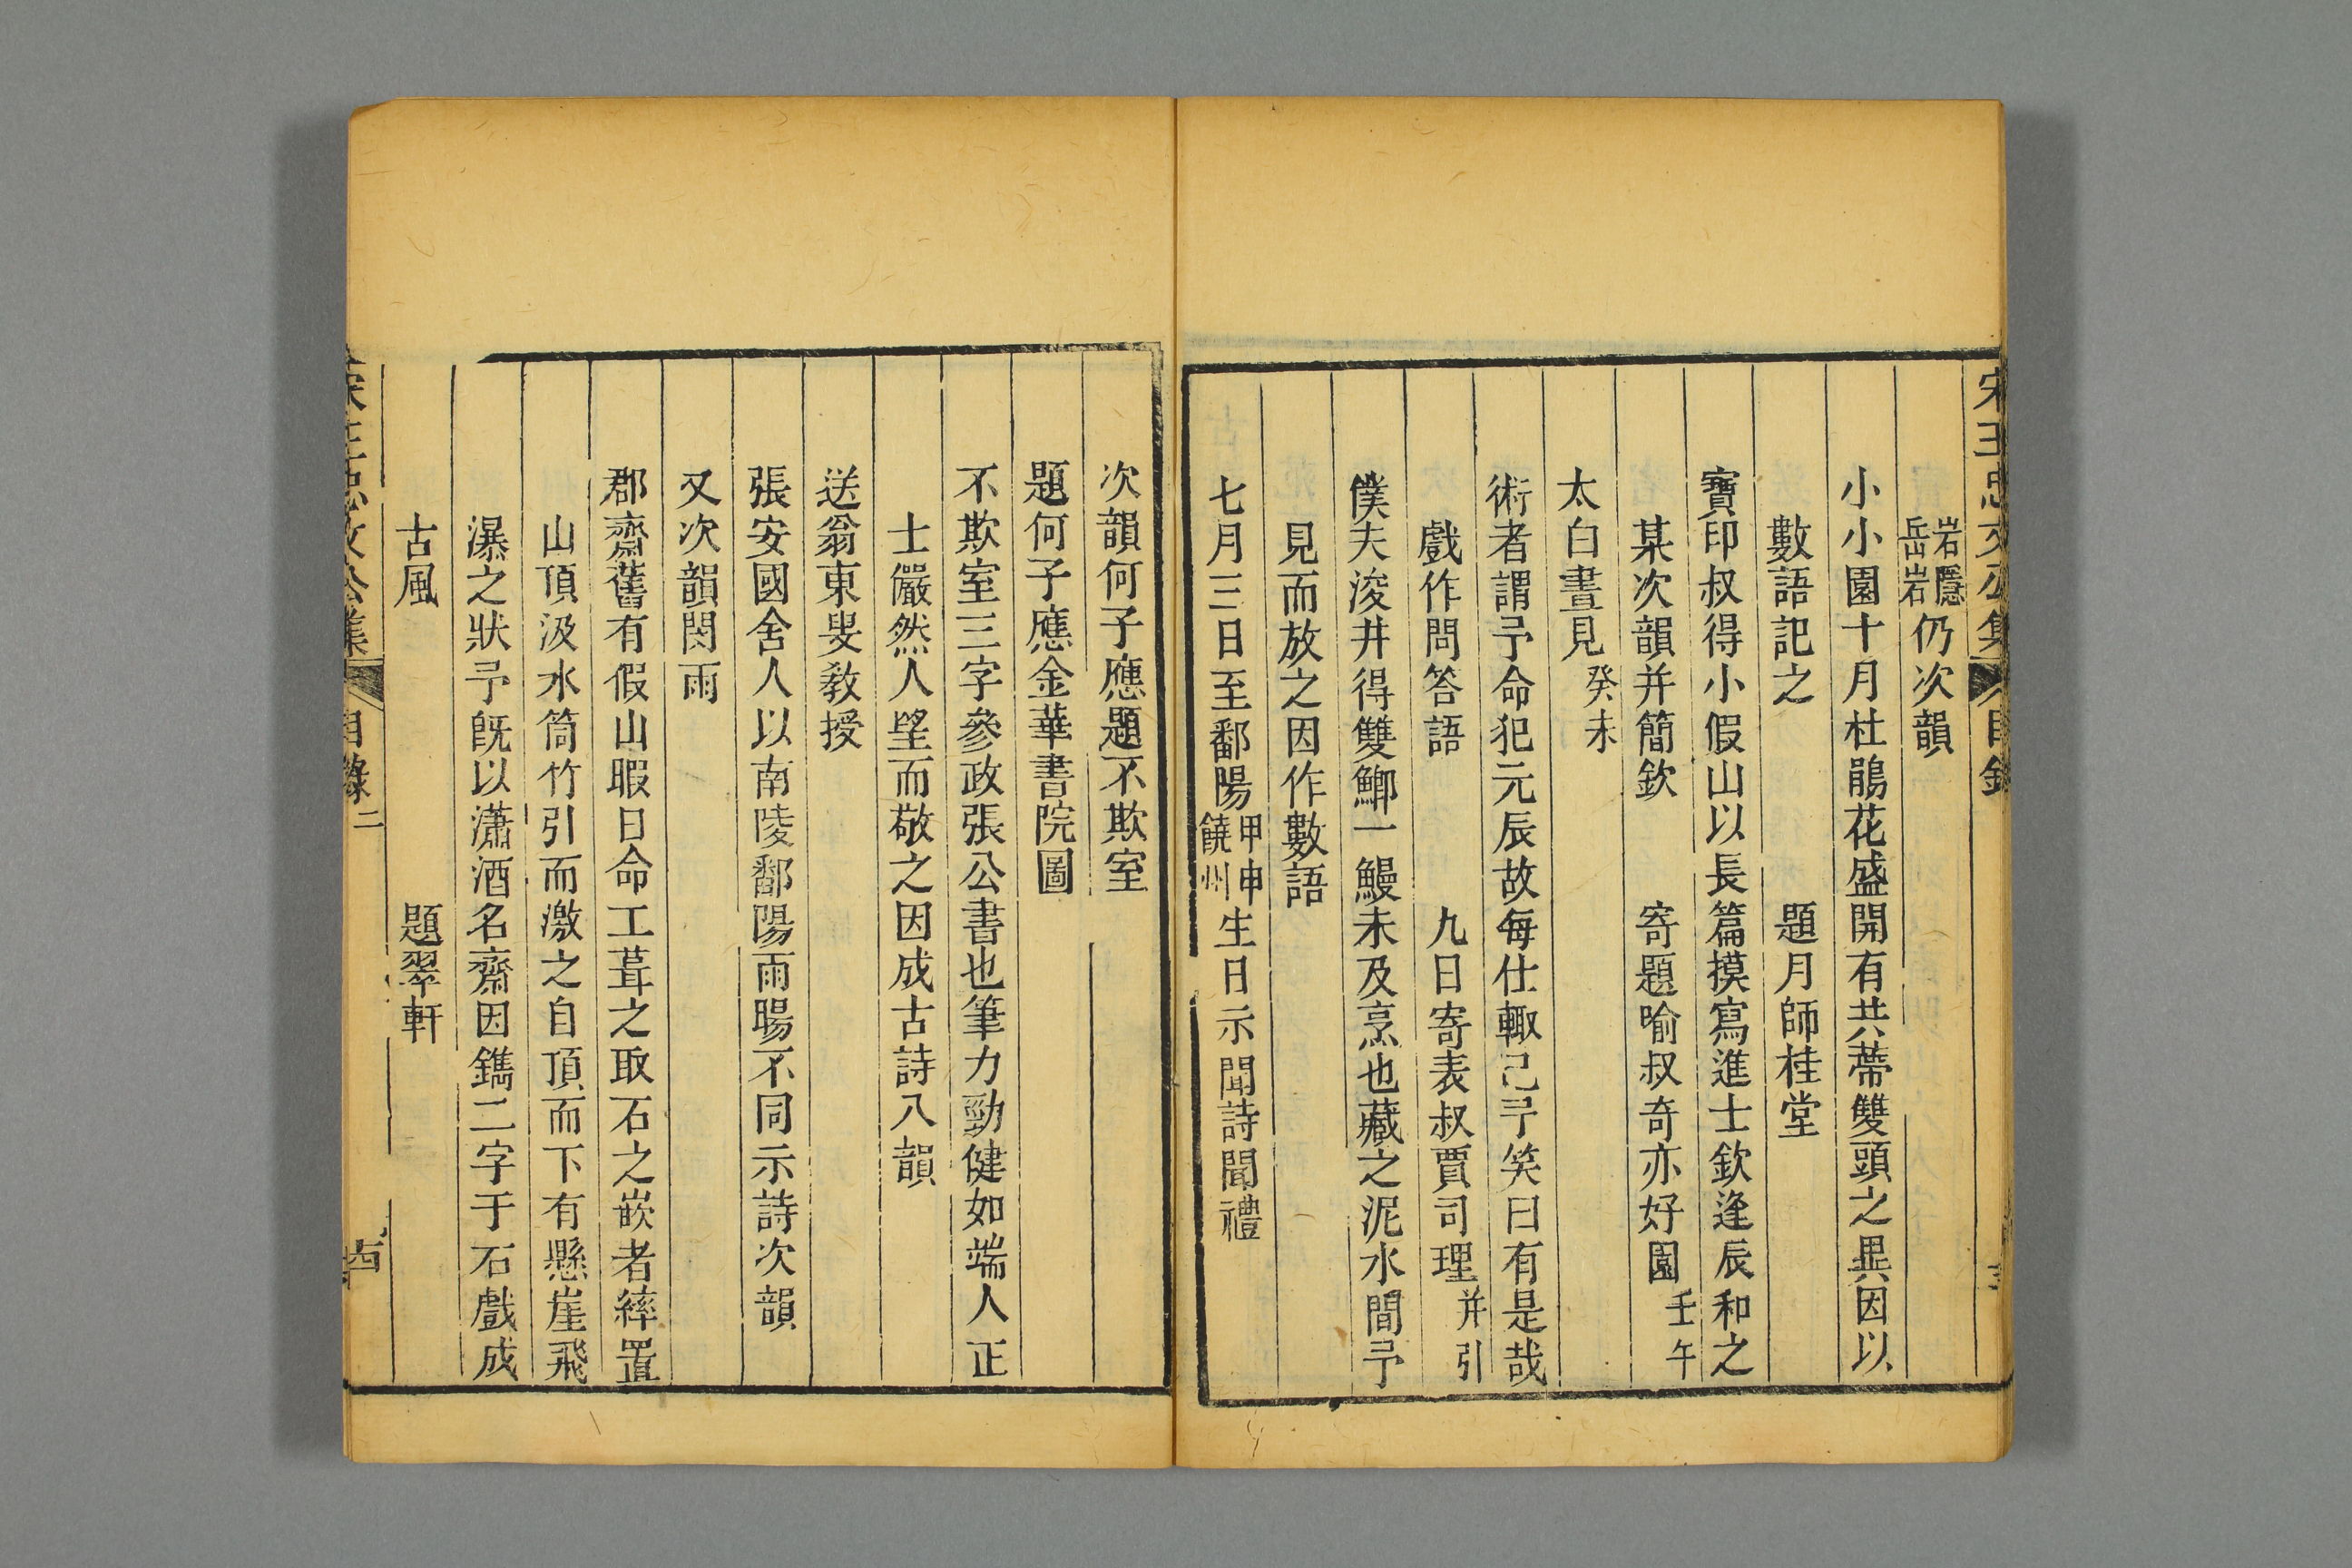 宋王忠文公集 目錄
岩隱岳岩仍次韻
小小園十月杜鵑花盛開有共蒂雙頭之異因以
數語記之 題月師桂堂
寶印叔得小假山以長篇摸寫進士欽逢辰和之
某次韻并簡欽 寄題喻叔奇亦好園壬午
太白晝見癸未
術者謂予命犯元辰故每仕輙己予笑曰有是哉
戲作問答語 九日寄表叔賈司理并引
僕夫浚井得雙鯽一鰻未及烹也藏之泥水間予
見而放之因作數語
七月三日至鄱陽甲申饒州生日示聞詩聞禮
次韻何子應題不欺室
題何子應金華書院圖
不欺室三字參政張公書也筆力勁健如端人正
士儼然人望而敬之因成古詩八韻
送翁東叟教授
張安國舍人以南陵鄱陽雨暘不同示詩次韻
又次韻閔雨
郡齋舊有假山暇日命工葺之取石之嵌者綷置
山頂汲水筒竹引而激之自頂而下有懸崖飛
瀑之狀予旣以瀟洒名齋因鐫二字于石戲成
古風 題翠軒
宋王忠文公集 目錄二 四